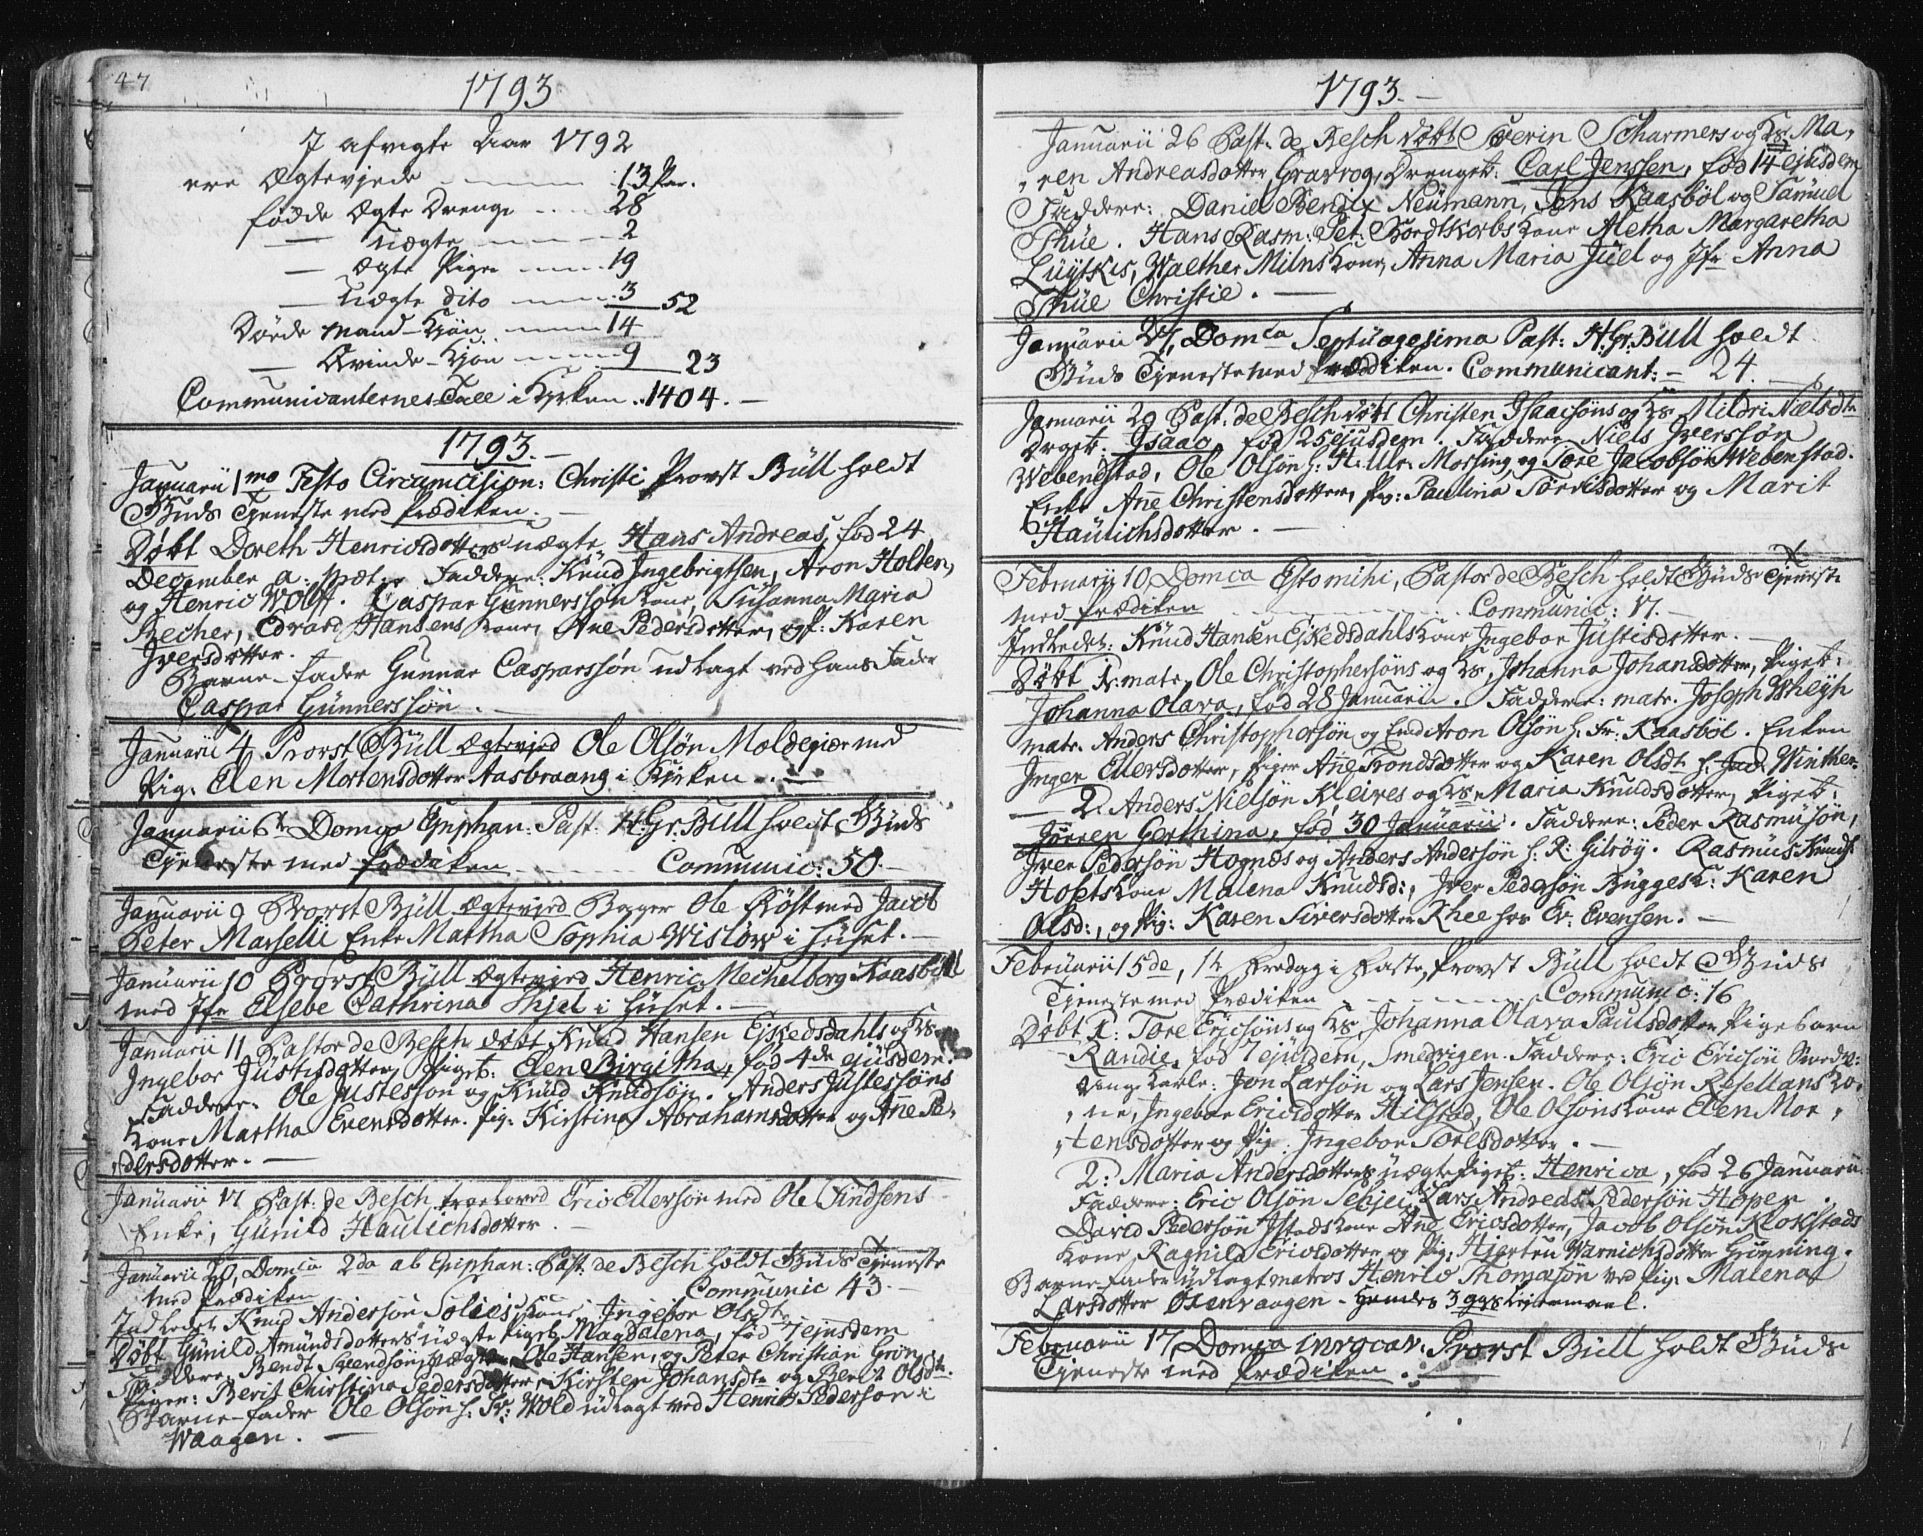 47
1793
I afvigte Aar 1792
ere Ægteviede 13 Par.
fødde Ægte Drenge 28
— Uægte 2
— Ægte Piger 19
— Uægte dito 3 52
Døde Mand-Kjøn 14
— Qvinde-Kjøn 9 23
Communicanternes Tall i Kirken 1404.
1793.
Januarii 1mo Festo Circumcision: Christi Provst Büll holdt
Guds Tjeneste med Prædiken.
Døbt Doreth Henricsdotters uægte Hans Andreas, fød 24
December a: Faddere: Knud Ingebrigtsen, Aron Holten,
og Henric Wolff. Caspar Gunnerssøn Kone, Susanna Maria
Becher, Edvard Hansens Kone, Ane Pedersdotter, og P: Karen
Iversdotter.
Barne-fader Gunnar Casparssøn udlagt ved hans Fader
Caspar Günnerssøn.
Januarii 4 Provst Büll ægteviede Ole Olsøn Moldegjær med
Pig: Elen Mortensdotter Aasbraang i Kirken.
Januarii 6te Domca Epiphan: Past: H: Gr: Bull holdt Guds
Tjeneste med Prædiken Communic: 50
Januarii 9 Provst Büll ægteviede Bager Ole Røst med Jacob
Peter Marselii Enke Martha Sophia Wisløw i Huset.
Januarii 10 Provst Büll ægteviede Henric Mechelborg Kaasbøll
med Jfr Elsebe Cathrina Thiel i Huset.
Januarii 11 Pastor de Besch døbt Knud Hansen Eskedsdahls og Ks
Ingebor Justisdotter, Piget: Elen Birgitha, fød 4de ejusdem.
Faddere: Ole Justessøn og Knud Knudsøn. Anders Justessøns
Kone Martha Evensdotter. Pig: Kirstina Abrahamsdotter og Ane Pe-
dersdotter.
Januarii 17 Past: de Besch trolovede Eric Ellersøn med Ole Findsens
Enke, Günild Haulichsdotter.
Januarii 20, Domca 2da ab Epiphan: Past: de Besch holdt Guds Tjeneste
med Prædiken Communic 43.
Indledet Knud Andersøn Solies Kone Ingebor Olsdtr
Døbt Günild Amundsdotters uægte Piget Magdalena, fød 7 ejusdem
Faddere: Bendt Svendsøn, Ole Hansen, og Peter Christian Grøn
Piger: Berit Christina Pedersdotter, Kirsten Johansdtr og Berit Olsdtr.
Barne-fader Ole Olsøn h. Fr: Wold udlagt ved Henric Pedersøn i
Waagen.
1793.
Januarii 26 Past: de Besch døbt Severin Scharmers og Ks Ma-
ren Andreasdotter Gravrog, Drenget: Carl Jenssen, fød 14 ejusdem
Faddere: Daniel Bendix Neümann, Jens Kaasbøl og Samuel
Thüe. Hans Rasm: Pet: Bordtkorbs Kone Aletha Margaretha
Lüytkis, Walther Milns Kone, Anna Maria Jüel og Jfr Anna
Thüe Christie.
Januarii 27, Domca Septuagesima Past: H: Gr: Büll holdt
Guds Tjeneste med Prædiken. Communicant: 24.
Januarii 29 Past: de Besch døbt Christen Isaacsøns og Ks Mildri Nielsdtr
Drget: Isaac, fød 25 ejusdem. Faddere: Niels Iverssøn
Webenstad, Ole Olsøn h: H: Mossing og Tore Jacobsøn Webenstad.
Enke Ane Christensdotter, Pig: Paulina Torrisdotter og Marit
Haulichsdotter.
Februarii 10 Domca Estomihi, Pastor de Besch holdt Guds Tjeneste
med Prædiken Communic: 17.
Indledet: Knud Hansen Eskedsdahls Kone Ingebor Justisdotter.
Døbt 1: matr. Ole Christophersøns og Ks, Johanna Johansdotter, Piget:
Johanna Olava, fød 28 Januarii. Faddere: matr. Joseph Wheyh
matr. Anders Christophersøn og Aron Olsøn h. Fr: Kaasbøl. Enken
Inger Ellersdotter, Piger Ane Trondsdotter og Karen Olsdtr h. Winther.
— 2. Anders Nielsøn Kleives og Ks. Maria Knudsdotter, Piget:
Jüren Gerthina, fød 30 Januarii. Faddere: Peder Rasmusøn,
Iver Pedersøn Hognæs og Anders Andersøn h. R: Gilrøy. Rasmus Knuds.
Hopts Kone Malena Knudsd:, Iver Pedersøn Bügges K: Karen
Olsd:, og Pig: Karen Siversdotter Rhee hos Ev: Evensen.
Februarii 15de, 1te Fredag i Faste, Provst Büll holdt Guds
Tjeneste med Prædiken Communic: 16
Døbt 1: Tore Ericsøns og Ks Johanna Olava Paulsdotter Pigebarn
Randie, fød 7 ejusdem, Smedvigen. Faddere: Eric Ericsøn
unge Karle: Jon Larsøn og Lars Jensen. Ole Olsøn Rosellans Ko-
ne, Ingebor Ericsdotter Hilstad, Ole Olsøns Kone Elen Mor-
tensdotter og Pig: Ingebor Toresdotter.
2: Maria Andersdotters uægte Piget: Henrica, fød 26 Januarii
Faddere: Eric Olsøn Schjei, Lars Andreas Pedersøn Hopen
David Pedersøn Istads Kone Ane Ericsdotter, Jacob Olsøn Klokstads
Kone Ragnild Ericsdotter og Pig: Hjerten Warnichsdotter Grønning.
Barne-fader udlagt matros Henric Thomæsøn ved Pig: Malena
Larsdotter Oxenvaagen - hendes 3 ggs Leiermaal.
Februarii 17 Domca invocav: Provst Büll holdt Guds
Tjeneste med Prædiken.